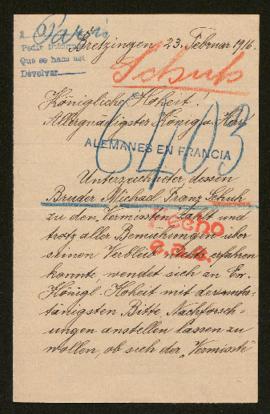 A Paris
Pedir
Que se haga
Devolver
Bretzingen, 23. Februar 1916.
Schuh
Königliche Hoheit!
Allergnädigster König u. Herr
64103
ALEMANES EN FRANCIA
Unterzeichneter, dessen
Bruder Michael Franz Schuh
zu den Vermissten zählt und
Hecho
trotz aller Bemühungen über
seinen Verbleib nichts erfahren
konnte, wendet sich an Ew.
Königl. Hoheit mit der unter-
tänigsten Bitte, Nachforsch-
ungen anstellen lassen zu
wollen, ob sich der Vermisste